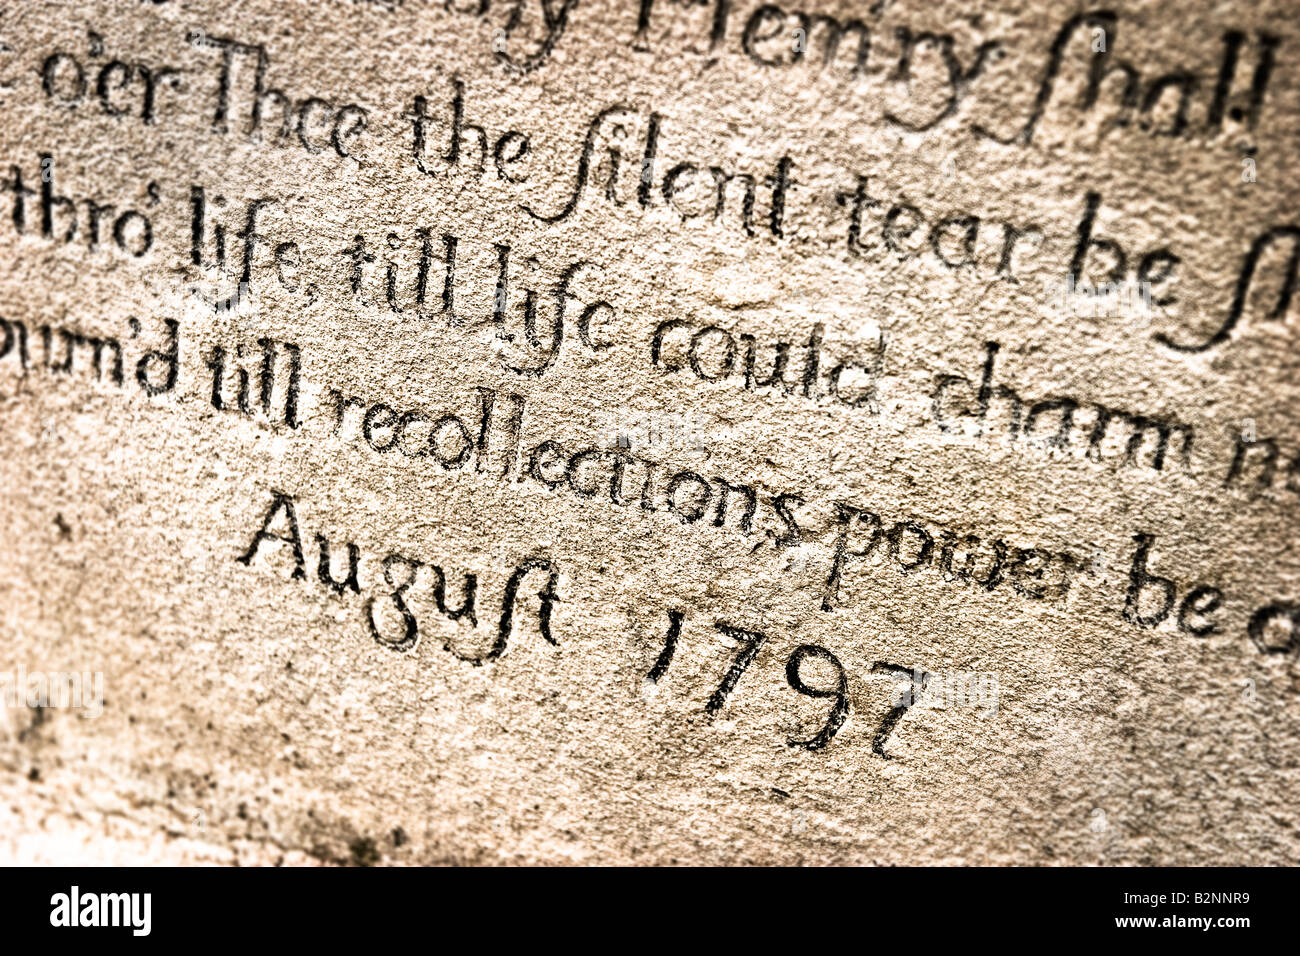 y Henry ſhall
o'er Thee the ſilent tear be ſh
thro' life, till life could charm n
ourn'd till recollections power be o
Auguſt 1797
alamy
Image ID: B2NNR9
www.alamy.com